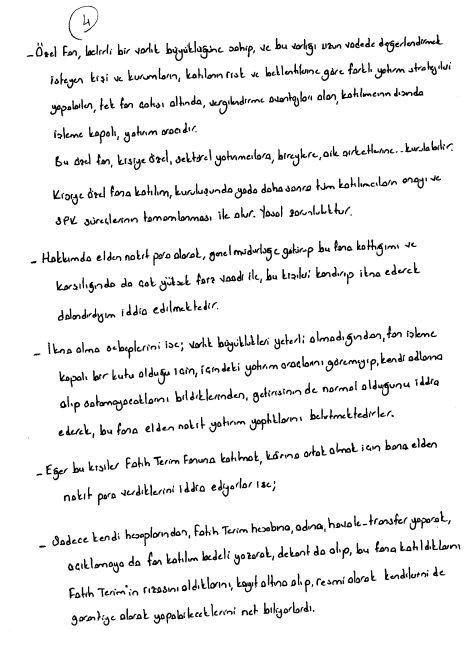 4
- Özel Fon, belirli bir varlık büyüklüğüne sahip, ve bu varlığı uzun vadede değerlendirmek
isteyen kişi ve kurumların, katılanların risk ve beklentilerine göre farklı yatırım stratejileri
yapabilen, tek fon çatısı altında, vergilendirme avantajları olan, katılımcının dışında
izleme kapalı, yatırım aracıdır.
Bu özel fon, kişiye özel, sektörel yatırımcılara, bireylere, aile şirketlerine.. kurulabilir.
Kişiye özel fona katılım, kuruluşunda yada daha sonra tüm katılımcıların onayı ve
SPK süreçlerinin tamamlanması ile olur. Yasal zorunluluktur.
- Hakkımda elden nakit para alarak, genel müdürlüğe götürüp bu fona kattığımı ve
karşılığında da çok yüksek faiz vaadi ile, bu kişileri kandırıp ikna ederek
dolandırdığım iddia edilmektedir.
- İkna olma sebeplerini ise; varlık büyüklükleri yeterli olmadığından, fon izleme
kapalı bir kutu olduğu için, içindeki yatırım araçlarını göremeyip, kendi adlarına
alıp satamayacaklarını bildiklerinden, getirisinin de normal olduğunu iddia
ederek, bu fona elden nakit yatırım yaptıklarını belirtmektedirler.
- Eğer bu kişiler Fatih Terim Fonuna katılmak, karına ortak olmak için bana elden
nakit para verdiklerini iddia ediyorlar ise;
- Sadece kendi hesaplarından, Fatih Terim hesabına, adına, havale-transfer yaparak,
açıklamaya da fon katılım bedeli yazarak, dekont da alıp, bu fona katıldıklarını
Fatih Terim'in rızasını aldıklarını, kayıt altına alıp, resmi olarak kendilerini de
garantiye alarak yapabileceklerini net biliyorlardı.